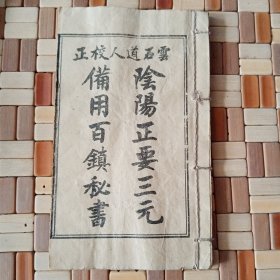 雲石道人校正
陰陽正要三元
備用百鎮秘書